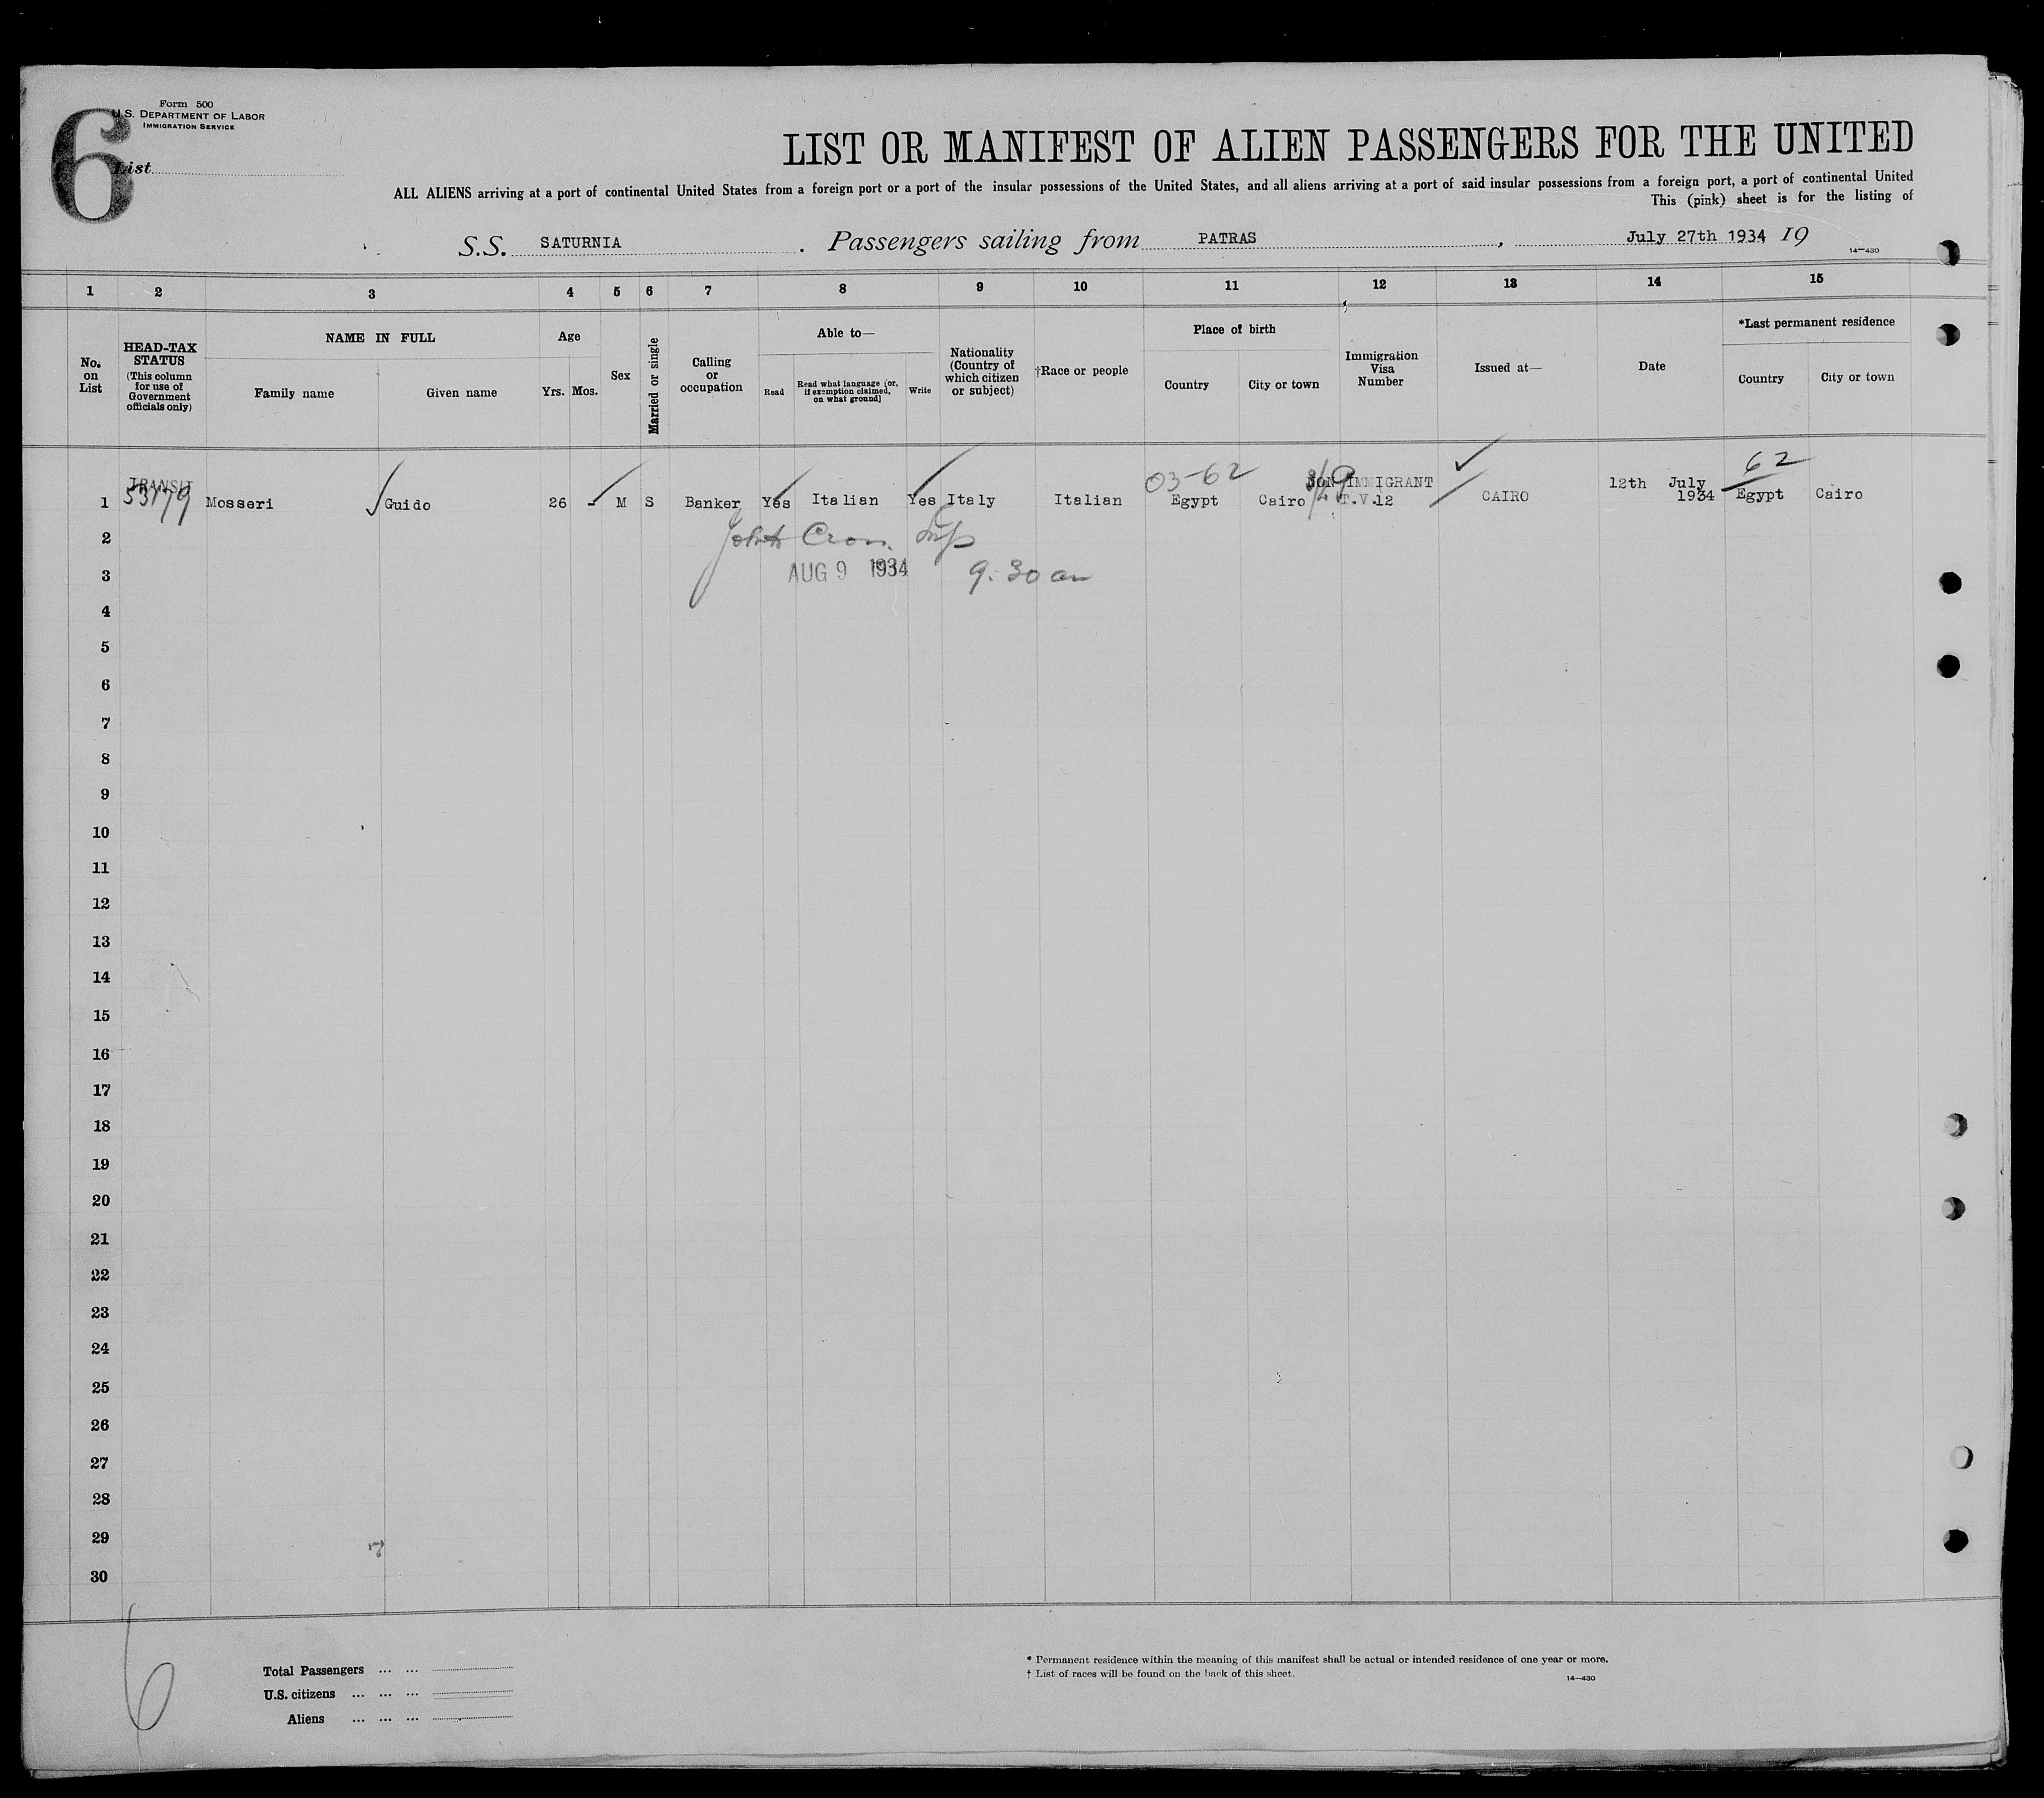 6
Form 500
U.S. DEPARTMENT OF LABOR
IMMIGRATION SERVICE
List
LIST OR MANIFEST OF ALIEN PASSENGERS FOR THE UNITED
ALL ALIENS arriving at a port of continental United States from a foreign port or a port of the insular possessions of the United States, and all aliens arriving at a port of said insular possessions from a foreign port, a port of continental United
This (pink) sheet is for the listing of
S.S. SATURNIA . Passengers sailing from PATRAS , July 27th 1934 19
14—430
1 2 3 4 5 6 7 8 9 10 11 12 13 14 15
No. on List
HEAD-TAX STATUS (This column for use of Government officials only)
NAME IN FULL
Family name Given name
Age
Yrs. Mos.
Sex
Married or single
Calling or occupation
Able to—
Read
Read what language [or, if exemption claimed, on what ground]
Write
Nationality (Country of which citizen or subject)
†Race or people
Place of birth
Country City or town
Immigration Visa Number
Issued at—
Date
*Last permanent residence
Country City or town
TRANSIT 03-62 NON IMMIGRANT 62
1 53179 Mosseri Guido 26 - M S Banker Yes Italian Yes Italy Italian Egypt Cairo T.V.12 CAIRO 12th July 1934 Egypt Cairo
2
3 AUG 9 1934 9.30 am
4
5
6
7
8
9
10
11
12
13
14
15
16
17
18
19
20
21
22
23
24
25
26
27
28
29
30
6
Total Passengers ... ...
U.S. citizens ... ... ...
Aliens ... ... ...
* Permanent residence within the meaning of this manifest shall be actual or intended residence of one year or more.
† List of races will be found on the back of this sheet.
14—430